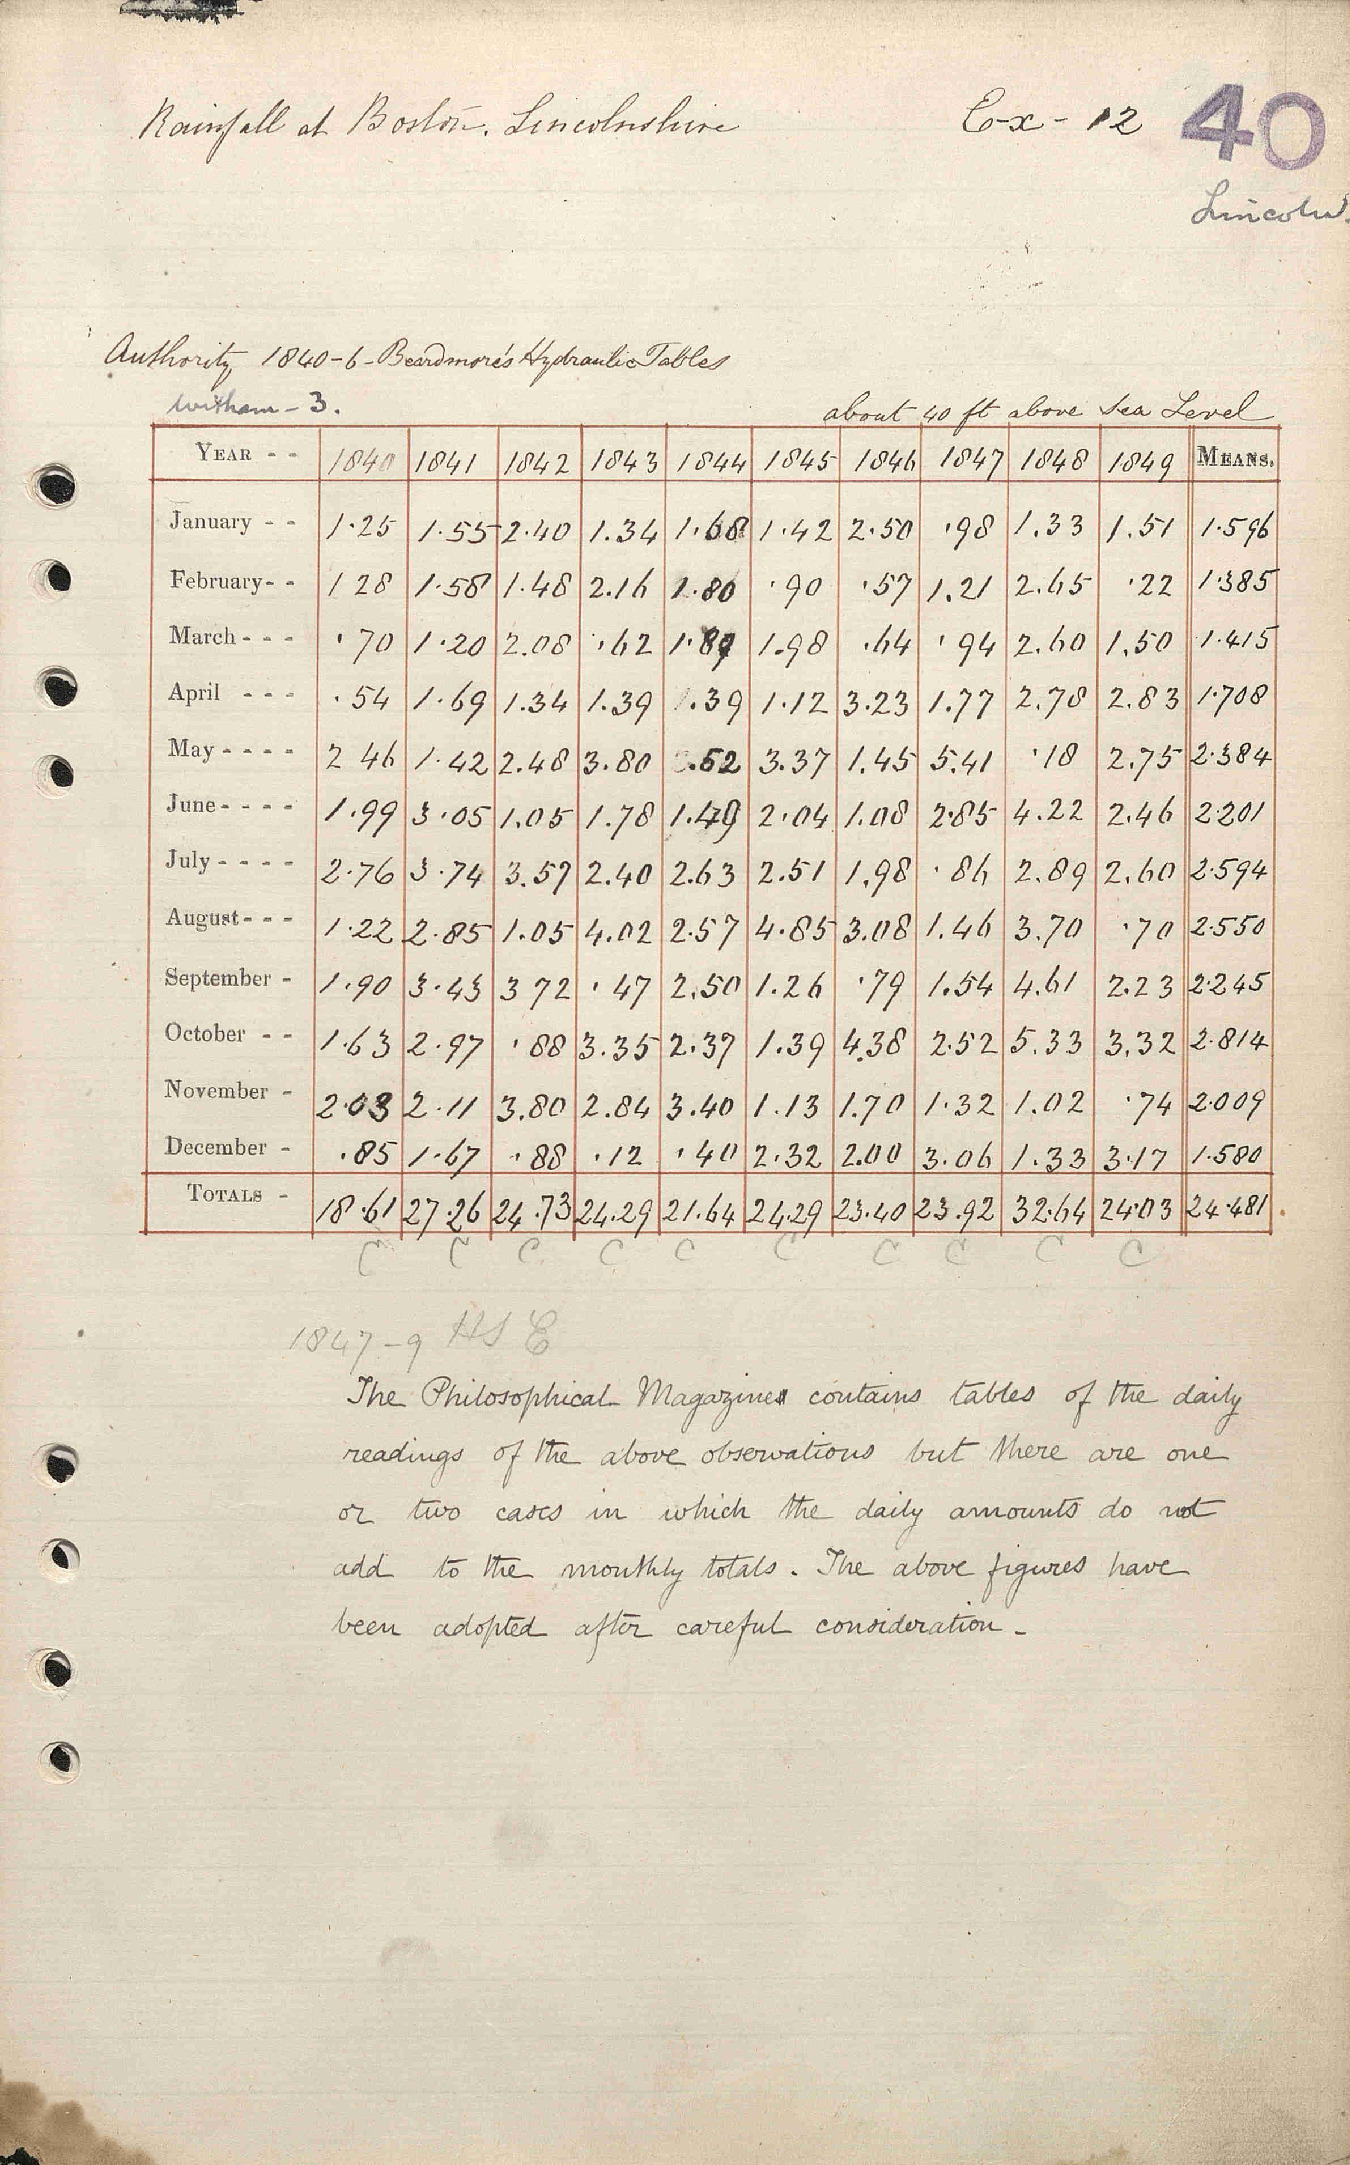 Rainfall at Boston. Lincolnshire Ex-12 40
Lincoln
Authority 1840-6-Beardmore's Hydraulic Tables
Witham-3. about 40 ft above Sea Level
YEAR - - 1840 1841 1842 1843 1844 1845 1846 1847 1848 1849 MEANS.
January - - 1.25 1.55 2.40 1.34 1.68 1.42 2.50 .98 1.33 1.51 1.596
February- - 1 28 1.58 1.48 2.16 1.80 .90 .57 1.21 2.65 .22 1.385
March - - - .70 1.20 2.08 .62 1.89 1.98 .64 .94 2.60 1.50 1.415
April - - - .54 1.69 1.34 1.39 .39 1.12 3.23 1.77 2.78 2.83 1.708
May - - - - 2 46 1.42 2.48 3.80 .52 3.37 1.45 5.41 .18 2.75 2.384
June - - - - 1.99 3.05 1.05 1.78 1.49 2.04 1.08 2.85 4.22 2.46 2.201
July - - - - 2.76 3.74 3.57 2.40 2.63 2.51 1.98 .86 2.89 2.60 2.594
August - - - 1.22 2.85 1.05 4.02 2.57 4.85 3.08 1.46 3.70 .70 2.550
September - 1.90 3.43 3 72 .47 2.50 1.26 .79 1.54 4.61 2.23 2.245
October - - 1.63 2.97 .88 3.35 2.37 1.39 4.38 2.52 5.33 3.32 2.814
November - 2.03 2.11 3.80 2.84 3.40 1.13 1.70 1.32 1.02 .74 2.009
December - .85 1.67 .88 .12 .40 2.32 2.00 3.06 1.33 3.17 1.580
TOTALS - 18.61 27.26 24.73 24.29 21.64 24.29 23.40 23.92 32.64 24.03 24.481
C C C C C C C C C C
1847-9 HSE
The Philosophical Magazine contains tables of the daily
readings of the above observations but there are one
or two cases in which the daily amounts do not
add to the monthly totals. The above figures have
been adopted after careful consideration -